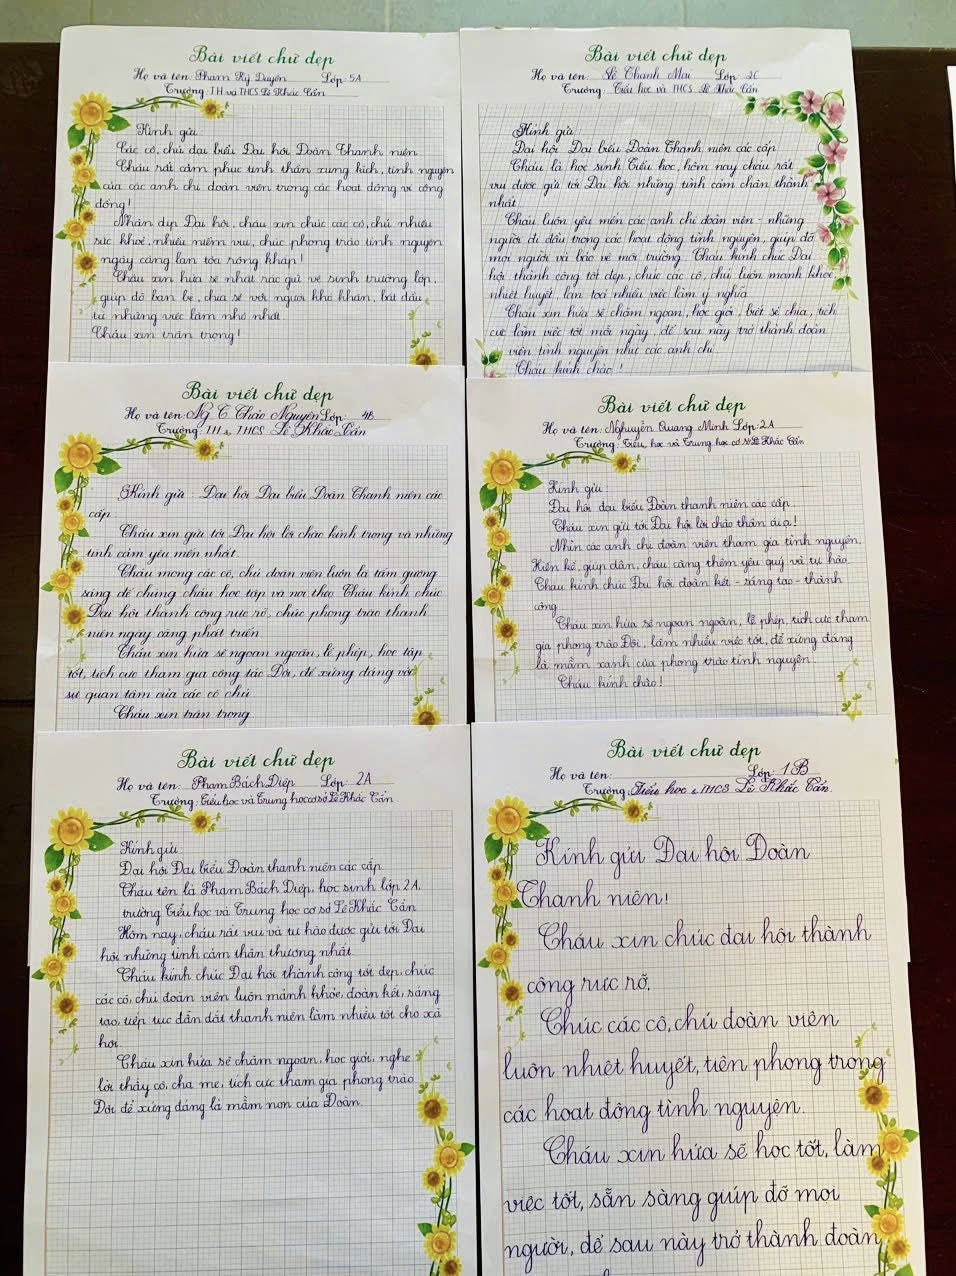 Bài viết chữ đẹp
Họ và tên: Phạm Kỳ Duyên Lớp: 5A
Trường: TH và THCS Lê Khắc Cẩn
Kính gửi
Các cô, chú đại biểu Đại hội Đoàn Thanh niên
Cháu rất cảm phục tinh thần xung kích, tình nguyện
của các anh chị đoàn viên trong các hoạt động vì cộng
đồng!
Nhân dịp Đại hội, cháu xin chúc các cô, chú nhiều
sức khoẻ, nhiều niềm vui, chúc phong trào tình nguyện
ngày càng lan tỏa rộng khắp!
Cháu xin hứa sẽ nhặt rác giữ vệ sinh trường lớp,
giúp đỡ bạn bè, chia sẻ với người khó khăn, bắt đầu
từ những việc làm nhỏ nhất
Cháu xin trân trọng!
Bài viết chữ đẹp
Họ và tên: Lê Thanh Mai Lớp: 2C
Trường: Tiểu học và THCS Lê Khắc Cẩn
Kính gửi:
Đại hội Đại biểu Đoàn Thanh niên các cấp
Cháu là học sinh Tiểu học, hôm nay cháu rất
vui được gửi tới Đại hội những tình cảm chân thành
nhất
Cháu luôn yêu mến các anh chị đoàn viên - những
người đi đầu trong các hoạt động tình nguyện, giúp đỡ
mọi người và bảo vệ môi trường. Cháu kính chúc Đại
hội thành công tốt đẹp, chúc các cô, chú luôn mạnh khỏe
nhiệt huyết, lan toả nhiều việc làm ý nghĩa
Cháu xin hứa sẽ chăm ngoan, học giỏi, biết sẻ chia, tích
cực làm việc tốt mỗi ngày, để sau này trở thành đoàn
viên tình nguyện như các anh chị
Cháu kính chào!
Bài viết chữ đẹp
Họ và tên: Ng T Thảo Nguyên Lớp: 4B
Trường: TH & THCS Lê Khắc Cẩn
Kính gửi: Đại hội Đại biểu Đoàn Thanh niên các
cấp.
Cháu xin gửi tới Đại hội lời chào kính trọng và những
tình cảm yêu mến nhất
Cháu mong các cô, chú đoàn viên luôn là tấm gương
sáng để chúng cháu học tập và noi theo Cháu kính chúc
Đại hội thành công rực rỡ, chúc phong trào thanh
niên ngày càng phát triển
Cháu xin hứa sẽ ngoan ngoãn, lễ phép, học tập
tốt, tích cực tham gia công tác Đội, để xứng đáng với
sự quan tâm của các cô chú
Cháu xin trân trọng
Bài viết chữ đẹp
Họ và tên: Nguyễn Quang Minh Lớp: 2A
Trường: Tiểu học và Trung học cơ sở Lê Khắc Cẩn
Kính gửi:
Đại hội đại biểu Đoàn thanh niên các cấp.
Cháu xin gửi tới Đại hội lời chào thân ái ạ!
Nhìn các anh chị đoàn viên tham gia tình nguyện,
giúp dân, cháu càng thêm yêu quý và tự hào
Cháu kính chúc Đại hội đoàn kết - sáng tạo - thành
công
Cháu xin hứa sẽ ngoan ngoãn, lễ phép, tích cực tham
gia phong trào Đội, làm nhiều việc tốt, để xứng đáng
là mầm xanh của phong trào tình nguyện!
Cháu kính chào!
Bài viết chữ đẹp
Họ và tên: Phạm Bách Diệp Lớp: 2A
Trường: Tiểu học và Trung học cơ sở Lê Khắc Cẩn
Kính gửi:
Đại hội Đại biểu Đoàn thanh niên các cấp
Cháu tên là Phạm Bách Diệp, học sinh lớp 2A,
trường Tiểu học và Trung học cơ sở Lê Khắc Cẩn
Hôm nay, cháu rất vui và tự hào được gửi tới Đại
hội những tình cảm thân thương nhất
Cháu kính chúc Đại hội thành công tốt đẹp, chúc
các cô, chú đoàn viên luôn mạnh khỏe, đoàn kết, sáng
tạo, tiếp tục dẫn dắt thanh niên làm nhiều tốt cho xã
hội
Cháu xin hứa sẽ chăm ngoan, học giỏi, nghe
lời thầy cô, cha mẹ, tích cực tham gia phong trào
Đội để xứng đáng là mầm non của Đoàn
Bài viết chữ đẹp
Họ và tên: Lớp: 1B
Trường: Tiểu học & THCS Lê Khắc Cẩn.
Kính gửi Đại hội Đoàn
Thanh niên!
Cháu xin chúc đại hội thành
công rực rỡ.
Chúc các cô, chú đoàn viên
luôn nhiệt huyết, tiên phong trong
các hoạt động tình nguyện.
Cháu xin hứa sẽ học tốt, làm
việc tốt, sẵn sàng giúp đỡ mọi
người, để sau này trở thành đoàn